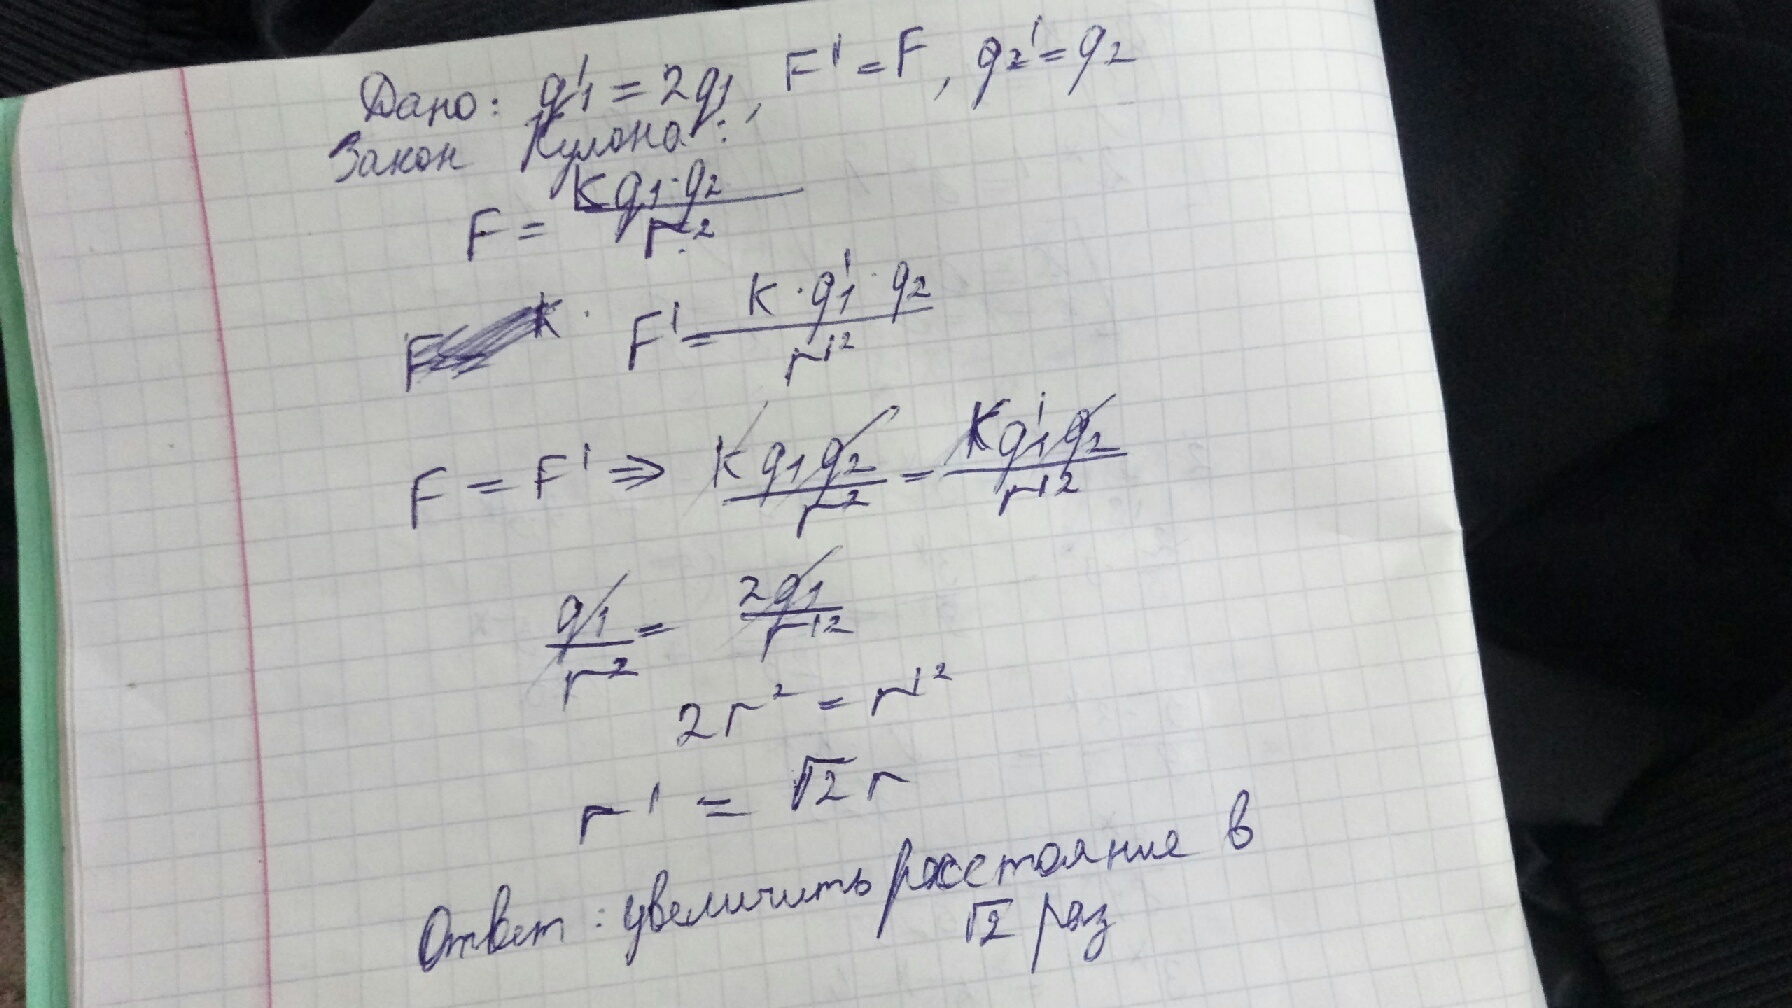 Дано: q₁' = 2q₁, F' = F, q₂' = q₂
Закон Кулона:
F = kq₁·q₂ / r²
F' = k·q₁'·q₂ / r'²
F = F' ⇒ kq₁q₂ / r² = kq₁'q₂ / r'²
q₁ / r² = 2q₁ / r'²
2r² = r'²
r' = √2 r
Ответ: увеличить расстояние в
√2 раз